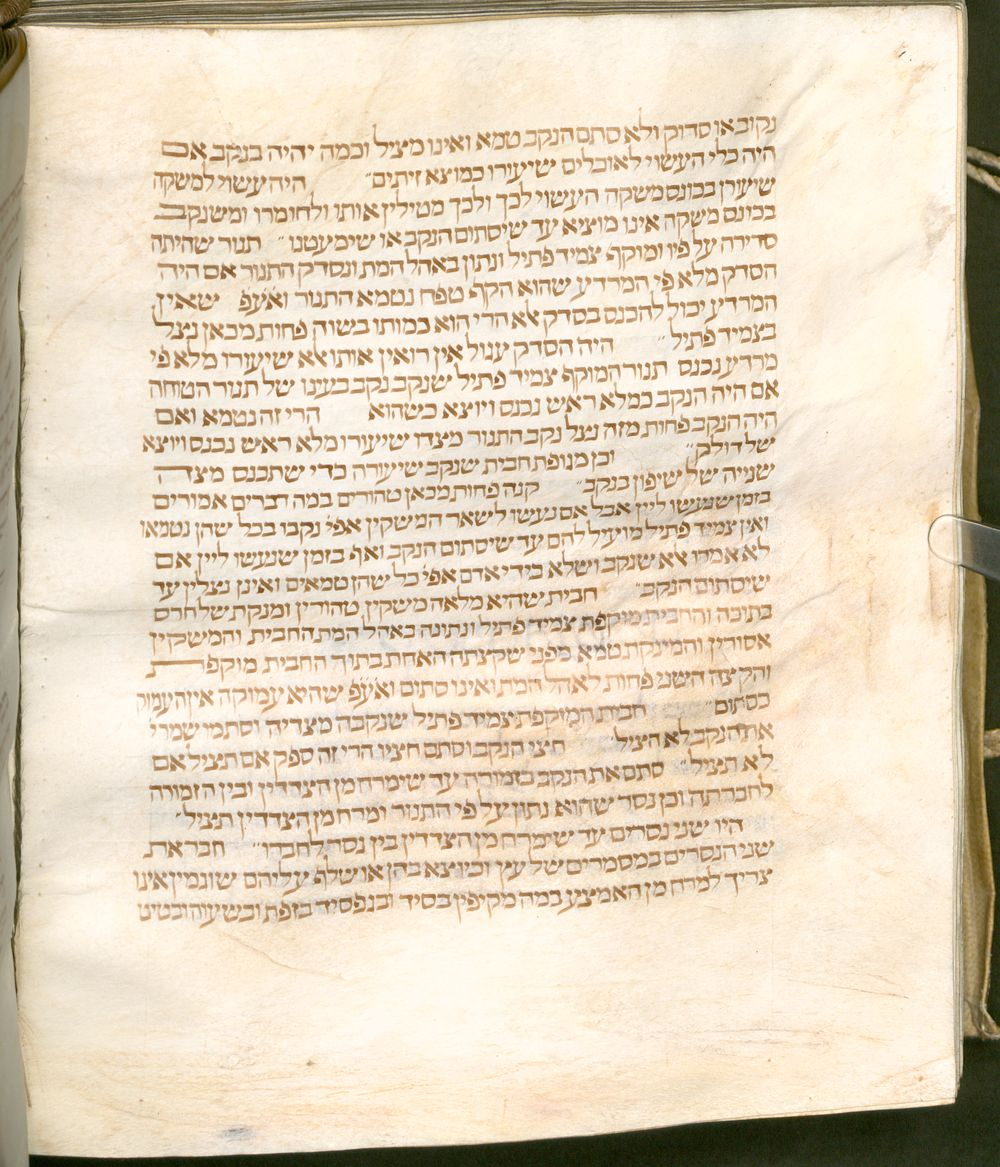 נקוב או סדוק ולא סתם הנקב טמא ואינו מציל וכמה יהיה בנקב אם
היה כלי העשוי לאוכלים שיעורו כמוצא זיתים״ היה עשוי למשקה
שיעורן בכונס משקה העשוי לכך ולכך מטילין אותו לחומרו ומשנקב
בכונס משקה אינו מוציא עד שיסתום הנקב או שימעטנו״ תנור שהיתה
סדירה על פיו ומוקף צמיד פתיל ונתון באהל המת ונסדק התנור אם היה
הסדק מלא פי המרדע שהוא הקף טפח נטמא התנור ואעפ שאין
המרדע יכול להכנס בסדק אלא הרי הוא כמותו בשוה פחות מכאן נצל
בצמיד פתיל״ היה הסדק עגול אין רואין אותו אלא שיעורו מלא פי
מרדע נכנס תנור המוקף צמיד פתיל שנקב נקב בעינו של תנור הטוחה
אם היה הנקב כמלא ראש נכנס ויוצא כשהוא הרי זה נטמא ואם
היה הנקב פחות מזה נצל נקב התנור מצדו שיעורו מלא ראש נכנס ויוצא
של דולק״ וכן מגופת חבית שנקב שיעורה כדי שתכנס מצדה
שנייה של שיפון בנקב״ קנה פחות מכאן טהורים במה דברים אמורים
בזמן שנעשו ליין אבל אם נעשו לשאר המשקין אפי׳ נקבו בכל שהן נטמאו
ואין צמיד פתיל מועיל להם עד שיסתום הנקב ואף בזמן שנעשו ליין אם
לא אמרו אלא שנקב ושלא בידי אדם אפי׳ כל שהן טמאים ואינן נצלין עד
שיסתום הנקב״ חבית שהיא מלאה משקין טהורין ומנקת של חרס
בתוכה והחבית מוקפת צמיד פתיל ונתונה באהל המת החבית והמשקין
אסורין והמינקת טמא מפני שקצתה האחת בתוך החבית מוקפת
והקצה השני פחות לאהל המת ואינו סתום ואעפ שהיא עמוקה אין העמוק
כסתום״ חבית המוקפת צמיד פתיל שנקבה מצדיה וסתמו שמרי׳
את הנקב לא הציל׳ חצי הנקב וסתם חציו הרי זה ספק אם תציל אם
לא תציל״ סתם את הנקב בזמורה עד שימרח מן הצדדין ובין הזמורה
לחברתה וכן נסר שהוא נתון על פי התנור ומרח מן הצדדין תציל״
היו שני נסרים עד שימרח מן הצדדין בין נסר לחברו״ חבר את
שני הנסרים במסמרים של עץ וכיוצא בהן או שלף עליהם שוגמין אינו
צריך למרח מן האמצע במה מקיפין בסיד ובגפסיד בזפת ובשעוה ובטיט